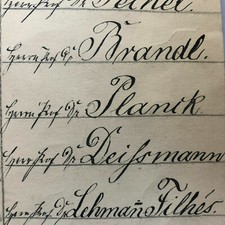 Herrn Prof Dr Pechel.
Herrn Prof Dr Brandl.
Herrn Prof Dr Planck.
Herrn Prof Dr Deißmann
Herrn Prof Dr Lehmañ-Filhés.